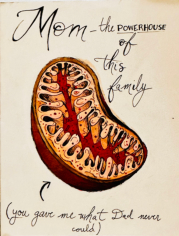 Mom - the POWERHOUSE
of
this
family
(you gave me what Dad never
could)